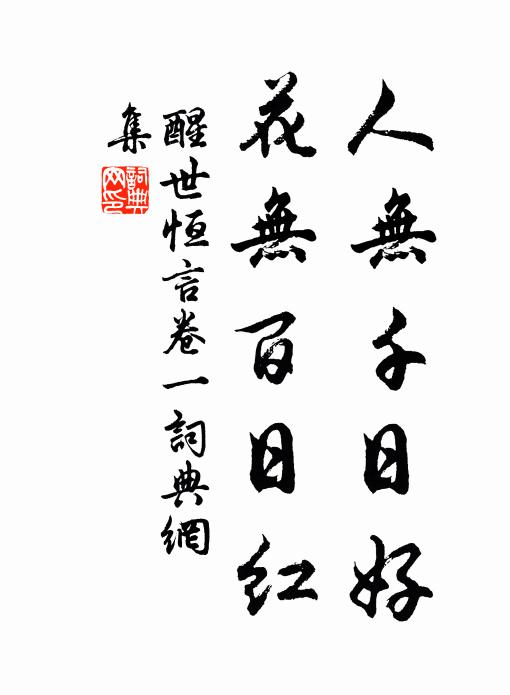 人無千日好
花無百日紅
醒世恒言卷一詞典網
集
詞典
网印